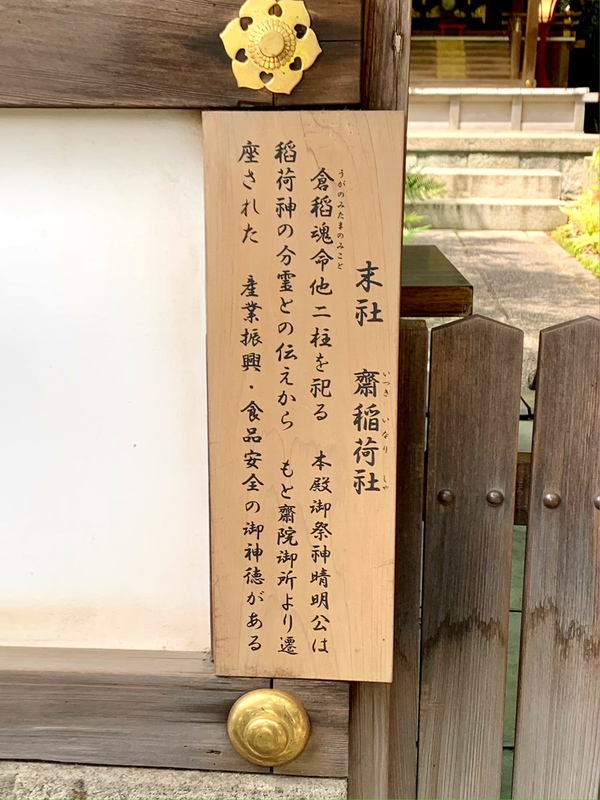 末社 齋稲荷社
いつき いなり しや
うがのみたまのみこと
倉稲魂命他二柱を祀る 本殿御祭神晴明公は
稲荷神の分霊との伝えから もと齋院御所より遷
座された 産業振興・食品安全の御神徳がある